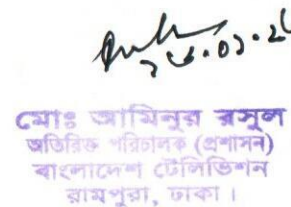 ২৫.০১.২৬
মোঃ আমিনুর রসুল
অতিরিক্ত পরিচালক (প্রশাসন)
বাংলাদেশ টেলিভিশন
রামপুরা, ঢাকা।